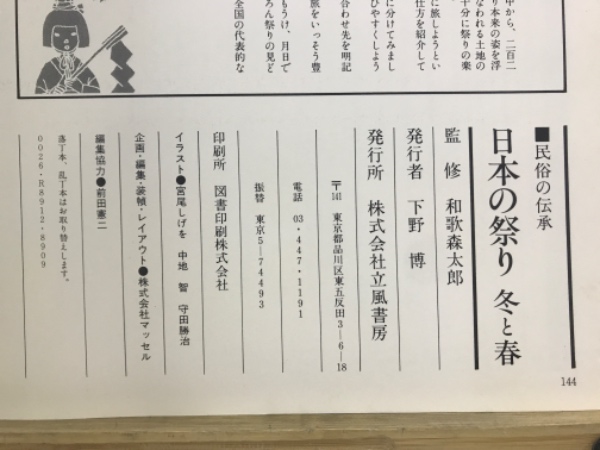 中から、二百二
り本来の姿を浮
なわれる土地の
十分に祭りの楽
に旅しようとい
仕方を紹介して
に分けてみまし
ひやすくしよう
合わせ先を明記
旅をいっそう豊
もうけ、月日で
ろん祭りの見ど
全国の代表的な
■民俗の伝承
日本の祭り 冬と春
監修 和歌森太郎
発行者 下野 博
発行所 株式会社立風書房
〒141 東京都品川区東五反田3−6−18
電話 03・447・1191
振替 東京5−74493
印刷所 図書印刷株式会社
イラスト●宮尾しげを 中地 智 守田勝治
企画・編集・装幀・レイアウト●株式会社マッセル
編集協力●前田憲二
落丁本、乱丁本はお取り替えします。
0026・R8912・8909
144